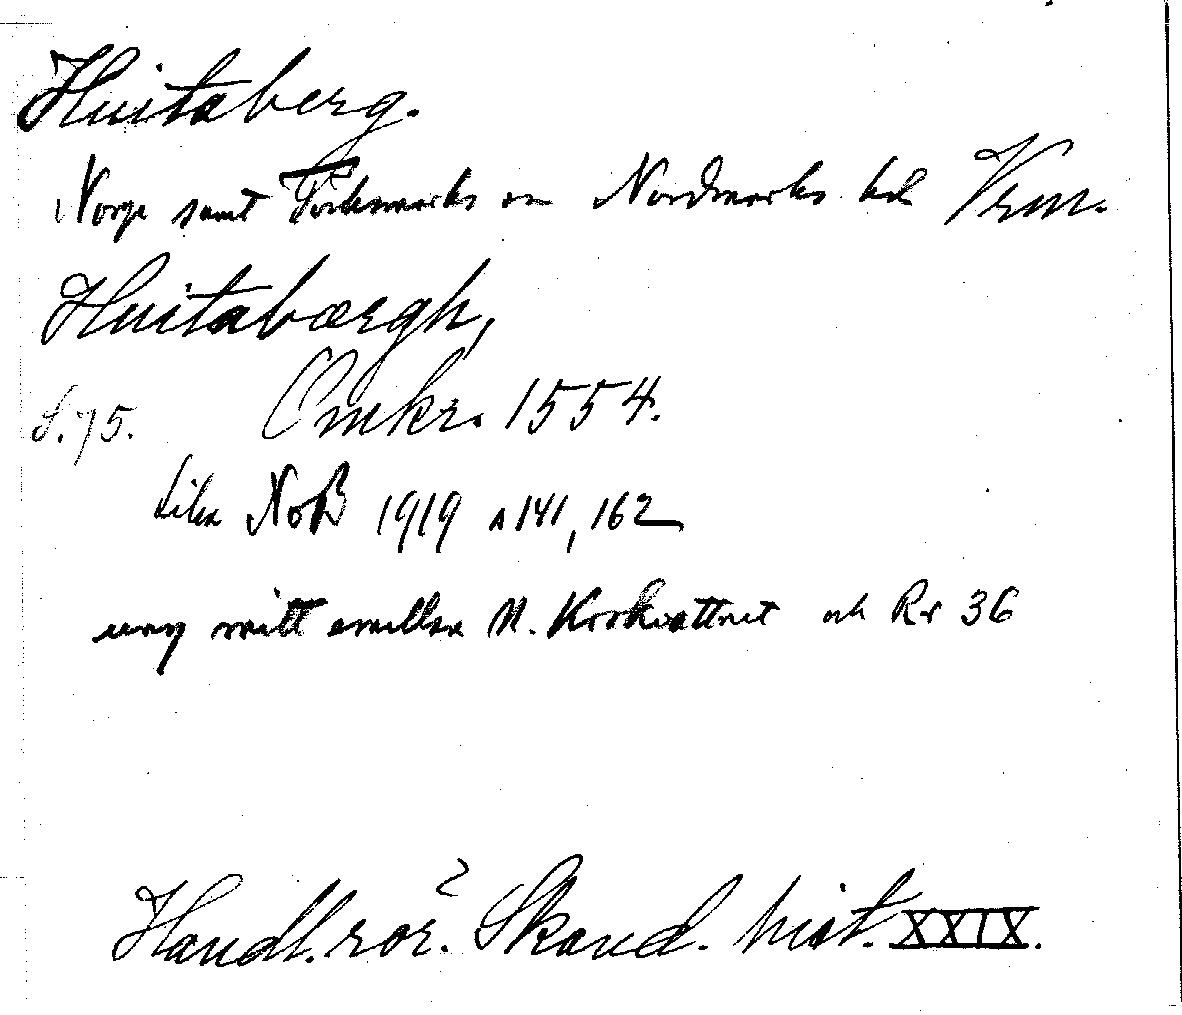 Huitaberg.
Norge samt Töcksmarks sn Nordmarks hd Vrm.
Huitabærgh,
S. 75. Omkr. 1554.
Likn NoB 1919 s 141, 162
ung mitt emellan N. Kornvattnet och Rr 36
Handl. rör. Skand. hist. XXIX.